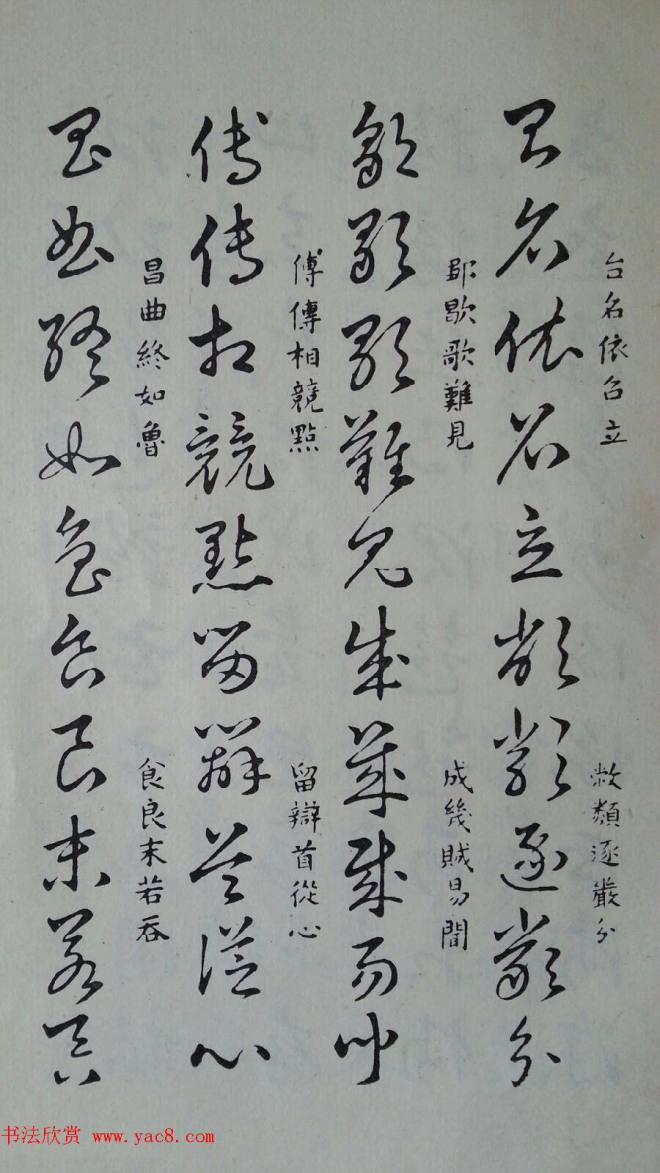 台名依召立
敝類逐嚴分
郢歇歌難見
成幾賊易聞
傅傳相競點
留辯首從心
昌曲終如魯
食良末若吞
书法欣赏 www.yac8.com